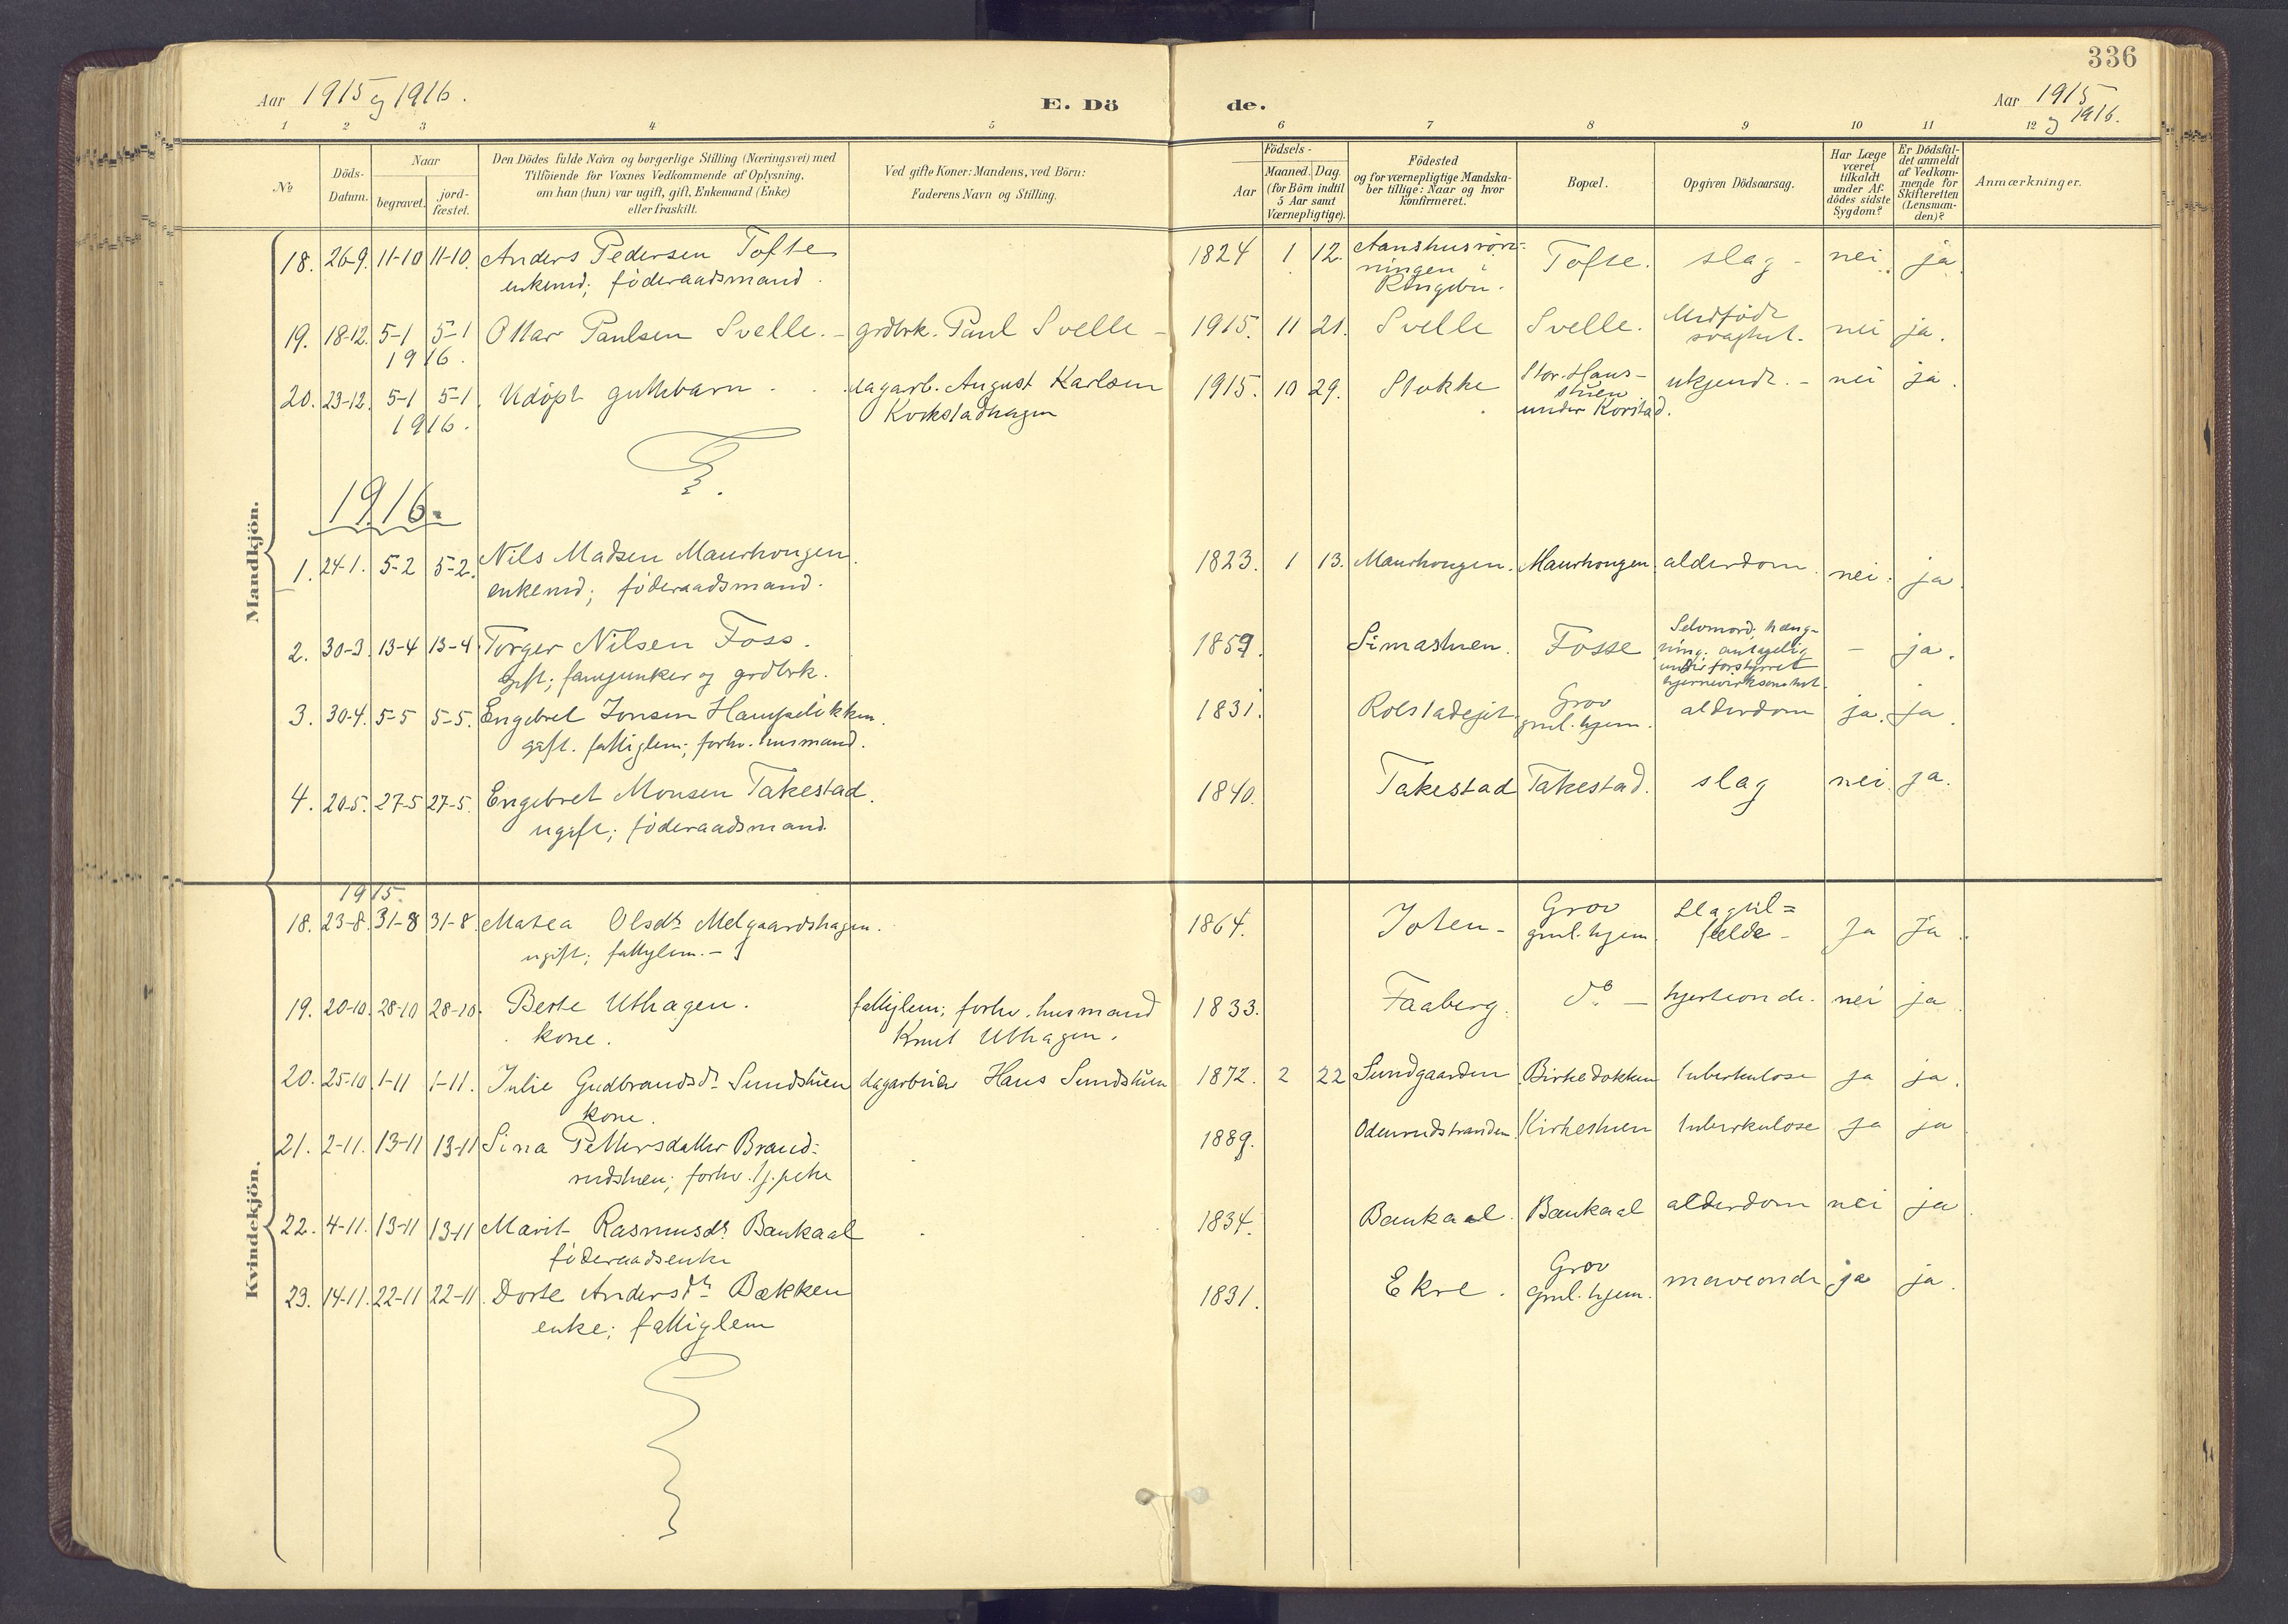 336
Aar 1915 og 1916.
E. Dö de.
Aar 1915 og 1916.
1 2 3 4 5 6 7 8 9 10 11 12
№
Döds-Datum.
Naar
begravet.
jord-fæstet.
Den Dödes fulde Navn og borgerlige Stilling (Næringsvei) med
Tilföiende for Voxnes Vedkommende af Oplysning,
om han (hun) var ugift, gift, Enkemand (Enke)
eller fraskilt.
Ved gifte Koner: Mandens, ved Börn:
Faderens Navn og Stilling.
Födsels-
Aar
Maaned. Dag.
(for Börn indtil
5 Aar samt
Værnepligtige).
Födested
og for værnepligtige Mandska-
ber tillige: Naar og hvor
konfirmeret.
Bopæl.
Opgiven Dödsaarsag.
Har Læge
været
tilkaldt
under Af-
dödes sidste
Sygdom?
Er Dödsfal-
det anmeldt
af Vedkom-
mende for
Skifteretten
(Lensman-
den)?
Anmærkninger.
Mandkjön.
18. 26-9. 11-10 11-10. Anders Pedersen Tofte 1824 1 12. Tofte. slag - nei. ja
enkemd; föderaadsmand.
ningen i
Ringebu.
19. 18-12. 5-1 5-1 Ottar Paulsen Svelle. - grdbrk. Paul Svelle - 1915. 11 21. Svelle Svelle. Medfödt nei ja.
1916. svaghet.
20. 23-12. 5-1 5-1. Udöpt guttebarn. dagarb. August Karlsen 1915. 10 29. Stokke Stor-Hans- ukjendt. - nei ja.
1916. stuen
under Korstad.
1916.
1. 24-1. 5-2 5-2. Nils Madsen Maurhougen. 1823. 1 13. Maurhougen. Maurhougen. alderdom. nei. ja.
enkemd; föderaadsmand.
2. 30-3. 13-4 13-4. Torger Nilsen Foss. 1859. Simastuen. Fosse Selvmord; hæng- - ja.
gift; fanejunker og grdbrk. ning; antagelig
under forstyrret
hjernevirksomhet.
3. 30-4. 5-5 5-5. Engebret Jonsen 1831. Rolstadejet. Grov alderdom ja. ja.
gift. fattiglem; forhv. husmand. gml. hjem.
4. 20-5. 27-5 27-5. Engebret Monsen Takestad. 1840. Takestad Takestad. slag nei. ja.
ugift; föderaadsmand.
Kvindekjön.
1915.
18. 23-8. 31-8 31-8. Matea Olsdtr Melgaardshagen. 1864. Joten - Grov Slagtil= Ja Ja.
ugift; fattiglem. - gml. hjem. fælde -
19. 20-10. 28-10 28-10. Berte Uthagen. fattiglem; forhv. husmand 1833. Faaberg. do - hjerteonde. nei ja
kone. Knut Uthagen.
20. 25-10. 1-11 1-11. Julie Gudbrandsdr Sundstuen dagarbeider Hans Sundstuen 1872. 2 22 Sundgaarden Birkedokken tuberkulose ja ja.
kone.
21. 2-11. 13-11 13-11 Sina Pettersdatter Brand- 1889. Odenrudstranden Kirkestuen tuberkulose ja ja
rudstuen; forhv. tj.pike
22. 4-11. 13-11 13-11 Marit Rasmusdr Baukaal 1834. Baukaal. Baukaal alderdom nei ja
föderaadsenke
23. 14-11. 22-11 22-11. Dorte Andersdtr Bækken 1831. Ekre. Grov maveonde ja ja
enke; fattiglem gml. hjem.